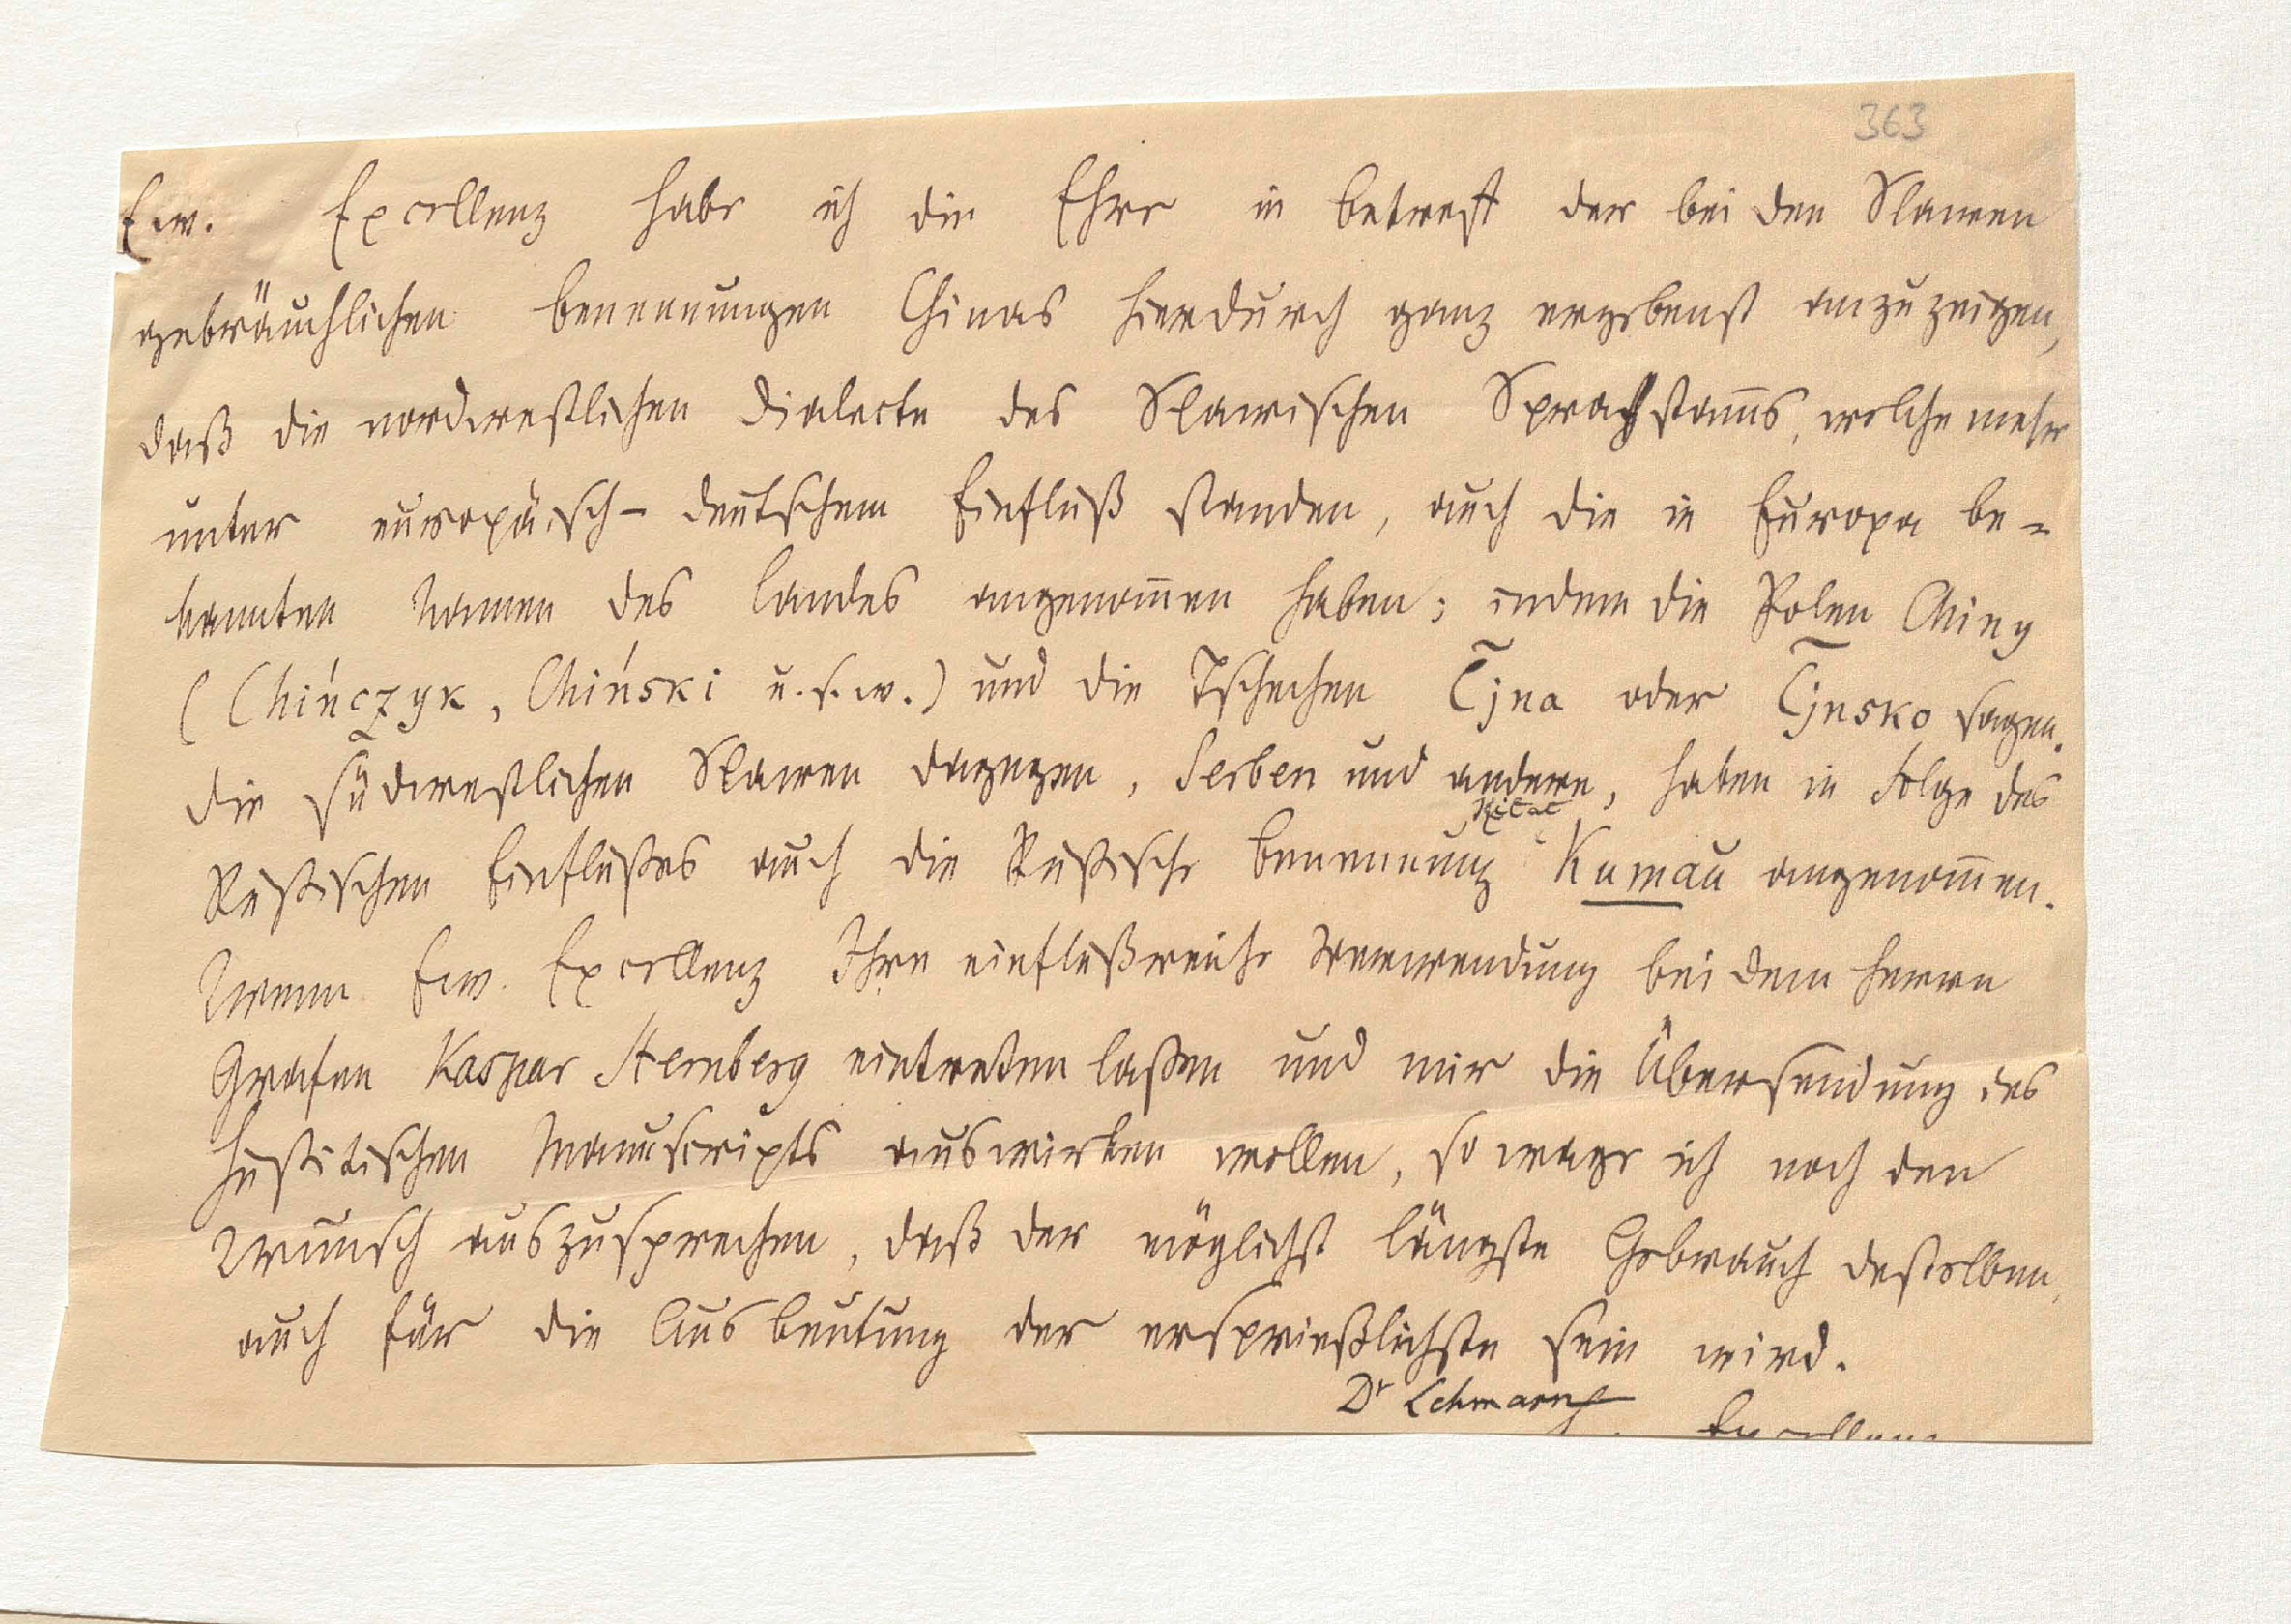 363
Ew. Excellenz habe ich die Ehre in betreff der bei den Slawen
gebräuchlichen benennungen Chinas hierdurch ganz ergebenst anzuzeigen,
daß die nordwestlichen dialecte des Slawischen Sprachstam̄s, welche mehr
unter europäisch-deutschem Einfluß standen, auch die in Europa be-
kannten Namen des Landes angenom̄en haben; indem die Polen Chiny
(Chińczyk, Chiński u.s.w.) und die Tschechen C̃jna oder C̃jnsko sagen.
die südwestlichen Slawen dagegen, Serben und andere, haben in Folge des
Kitat
Rußischen Einflußes auch die Rußische benennung Kumaŭ angenom̄en.
Wenn Ew. Excellenz Ihre einflußreiche Verwendung bei dem Herrn
Grafen Kaspar Sternberg eintreten laßen und mir die Übersendung des
Hußitischen Manuscripts auswirken wollen, so wage ich noch den
Wunsch auszusprechen, daß der möglichst längste Gebrauch deßelben,
auch für die Ausbeutung der ersprießlichste sein wird.
Dr Lehmann
Excellenz